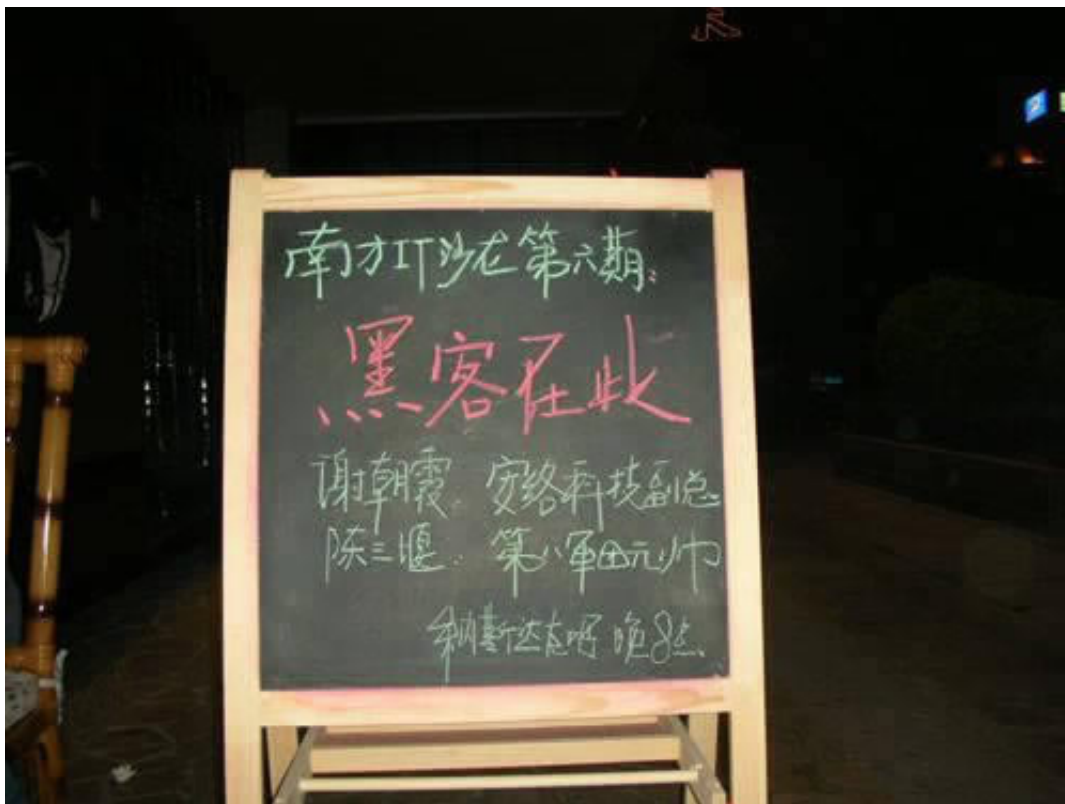 南方IT沙龙第六期:
黑客在此
谢朝霞. 安络科技副总
陈三堰. 第八军团元帅
纳斯达克吧 晚8点